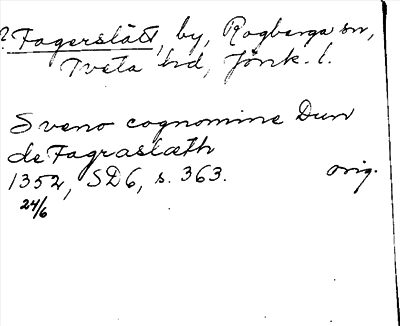 ? Fagerslätt, by, Rogberga sn,
Tveta hd, Jönk. l.
Sveno cognomine Dun
de Fagraslæth
1352, SD6, s. 363. orig.
24/6